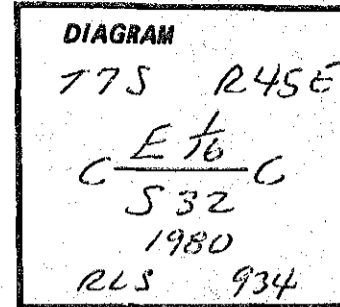 DIAGRAM
T7S R45E
E 1/16
C C
S 32
1980
RLS 934